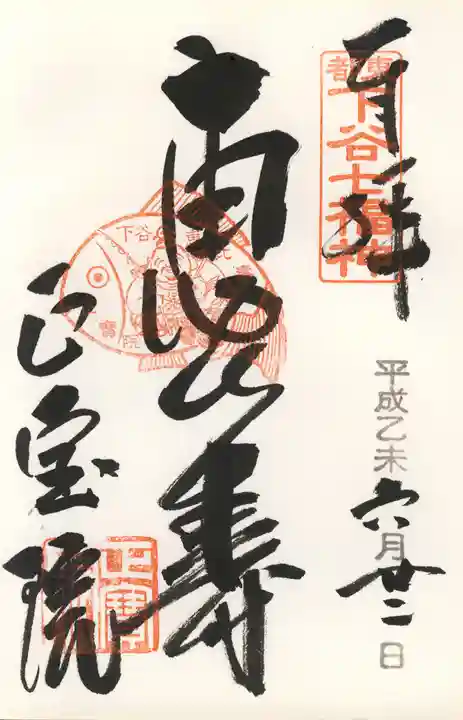 奉拝
東都
下谷七福神
平成乙未六月廿二日
恵比寿
下谷
寳院
正宝院
正寳院